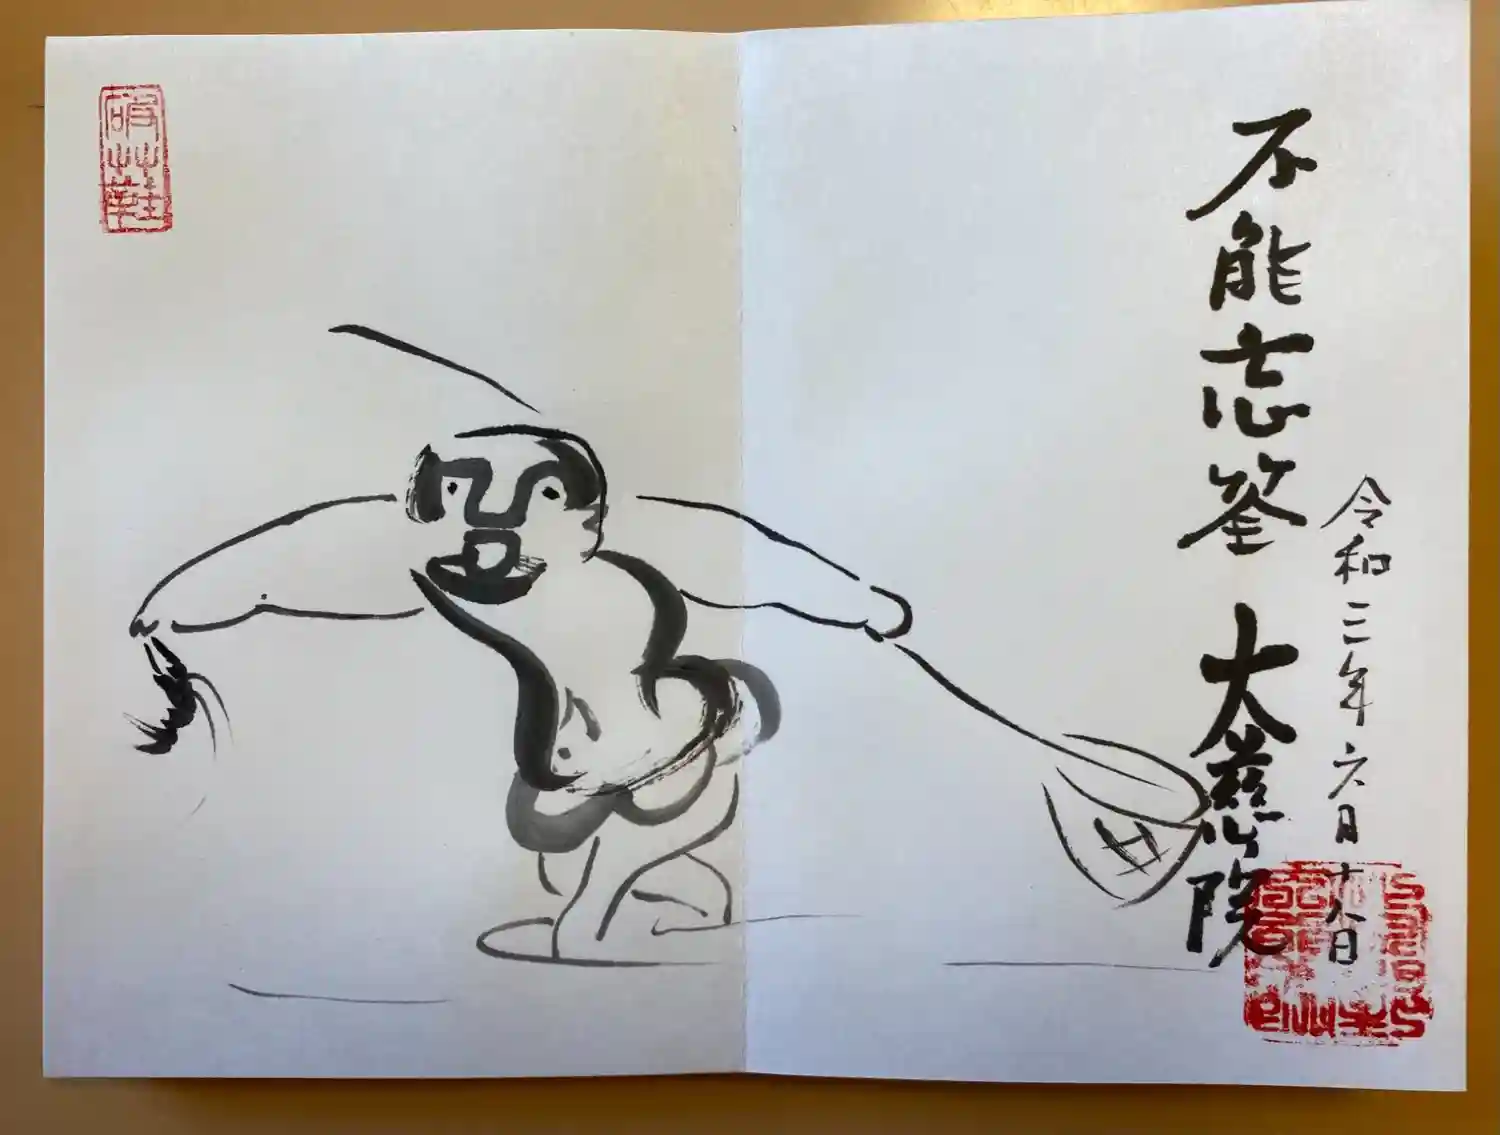 令和三年六月十八日
不能忘筌 大慈院
破艸鞋